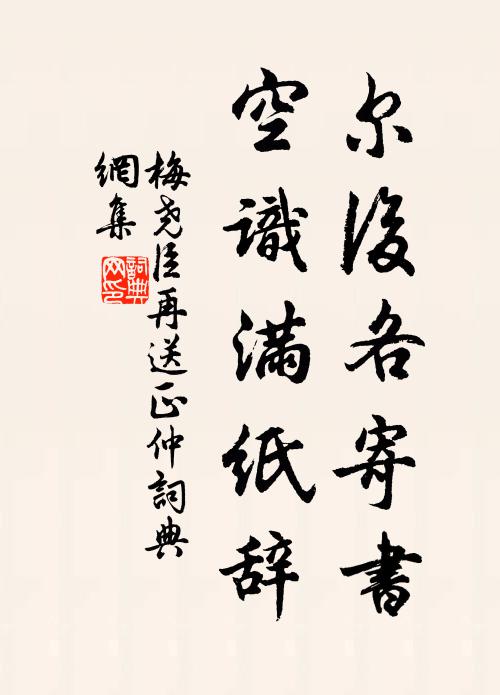 尔後各寄書
空識满纸辞
梅尧臣再送正仲詞典
網集
詞典網印